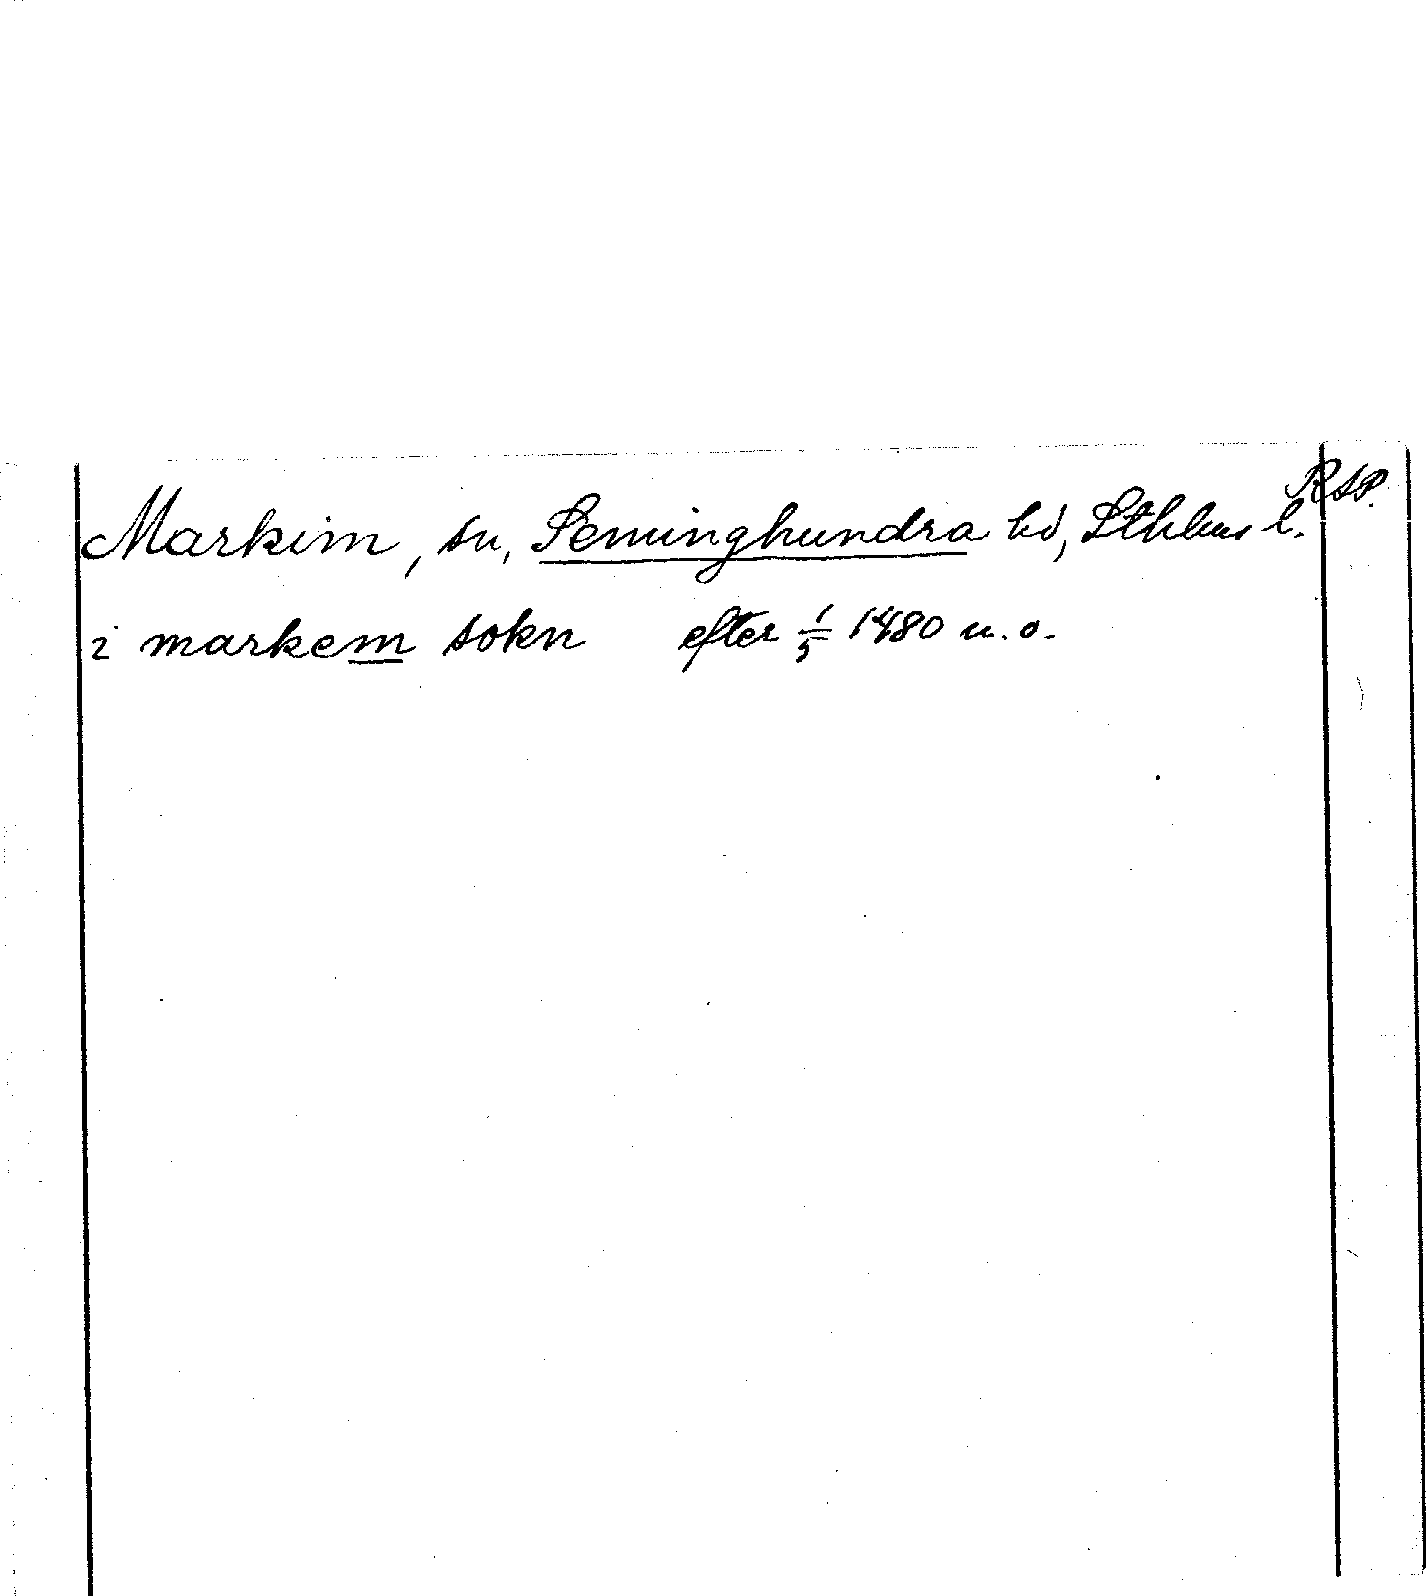 RAP.
Markim, sn, Seminghundra hd, Sthlms l.
i markem sokn efter 1/5 1480 u. o.